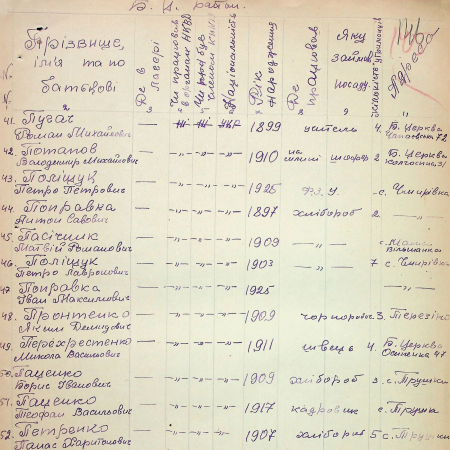 Б. Ц. район.
№ № Прізвище, ім'я та по батькові Де в лагері Чи працював в органах НКВД Чи був членом Національність Рік народження Де працював Яку займав посаду Кількість Адреса
41. Пугач — 1899 учитель 4. Б. Церква
Роман Михайлович
42. Потапов — " — " — " 1910 на млині шофер 2 Б. Церква
Володимир Михайлович
43. Поліщук — " — " — " 1925 Ф.З.У. - с. Чмирівка
Петро Петрович
44. Поправка — " — " — " 1897 хлібороб 2 — " —
Антон Савович
45. Пасічник — " — " — " 1909 — " — с. Мала Вільшанка
Матвій Романович
46. Поліщук — " — " — " 1903 — " — 7 с. Чмирівка
Петро Лаврович
47. Поправка — " — " — " 1925 — — " —
Іван Максимович
48. Пронтенко — " — " — " 1909 чорнороб 3. Терезіно
Яким Демидович
49. Перехрестенко — " — " — " 1911 швець 4. Б. Церква
Микола Васильович
50. Пащенко — " — " — " 1909 хлібороб 3. с. Трушки
Борис Іванович
51. Пащенко — " — " — " 1917 кадровик с. Трушки
Теофан Васильович
52. Петренко — " — " — " 1907 хлібороб 5 с. Трушки
Панас Харитонович